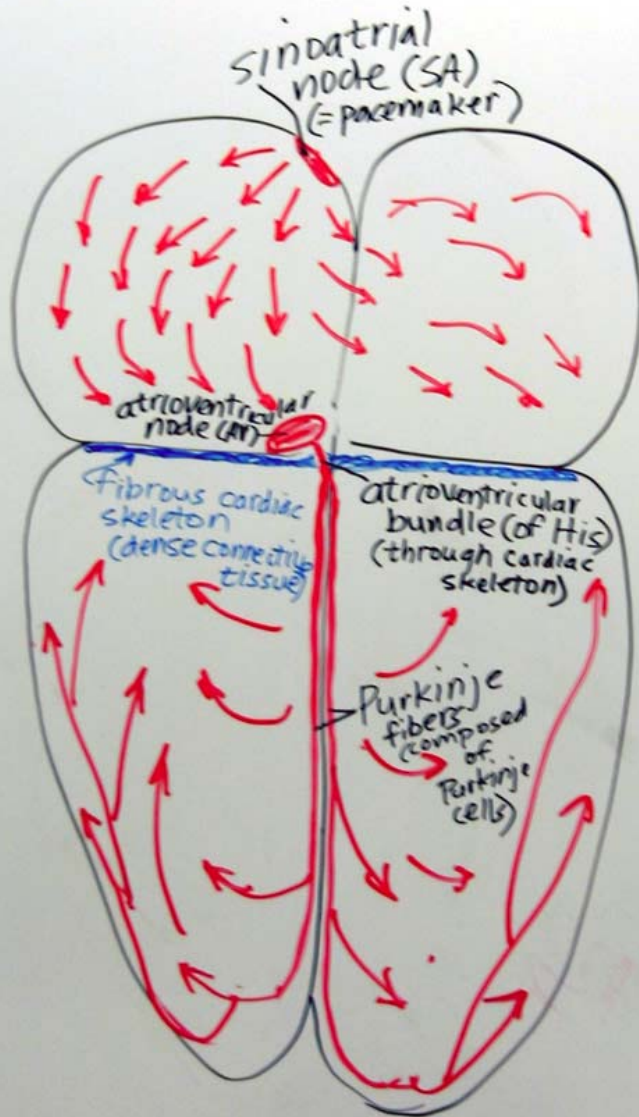 sinoatrial
node (SA)
(=pacemaker)
atrioventricular
node (AV)
fibrous cardiac
skeleton
(dense connective
tissue)
atrioventricular
bundle (of His)
(through cardiac
skeleton)
Purkinje
fibers
(composed
of
Purkinje
cells)